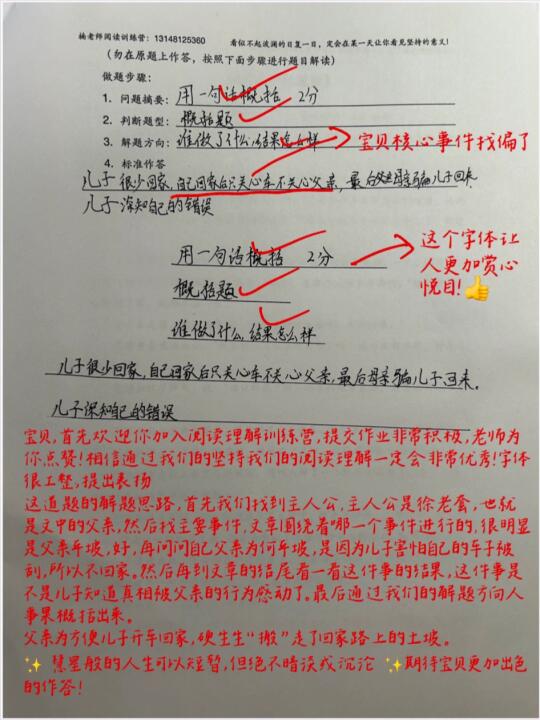 杨老师阅读训练营：13148125360 看似不起波澜的日复一日，定会在某一天让你看见坚持的意义！
（勿在原题上作答，按照下面步骤进行题目解读）
做题步骤：
1. 问题摘要：用一句话概括 2分
2. 判断题型：概括题
3. 解题方向：谁做了什么，结果怎么样
宝贝核心事件找偏了
4. 标准作答
儿子很少回家，自己回家后只关心车不关心父亲，最后母亲骗儿子回来。
儿子深知自己的错误
用一句话概括 2分
这个字体让
人更加赏心
悦目！👍
概括题
谁做了什么，结果怎么样
儿子很少回家，自己回家后只关心车不关心父亲，最后母亲骗儿子回来。
儿子深知自己的错误
宝贝，首先欢迎你加入阅读理解训练营，提交作业非常积极，老师为
你点赞！相信通过我们的坚持我们的阅读理解一定会非常优秀！字体
很工整，提出表扬
这道题的解题思路，首先我们找到主人公，主人公是徐老套，也就
是文中的父亲，然后找主要事件，文章围绕着哪一个事件进行的，很明显
是父亲平坡，好，再问问自己父亲为何平坡，是因为儿子害怕自己的车子被
刮，所以不回家。然后再到文章的结尾看一看这件事的结果，这件事是
不是儿子知道真相被父亲的行为感动了。最后通过我们的解题方向人
事果概括出来。
父亲为方便儿子开车回家，硬生生“搬”走了回家路上的土坡。
✨ 慧星般的人生可以短暂，但绝不暗淡或沉沦 ✨期待宝贝更加出色
的作答！